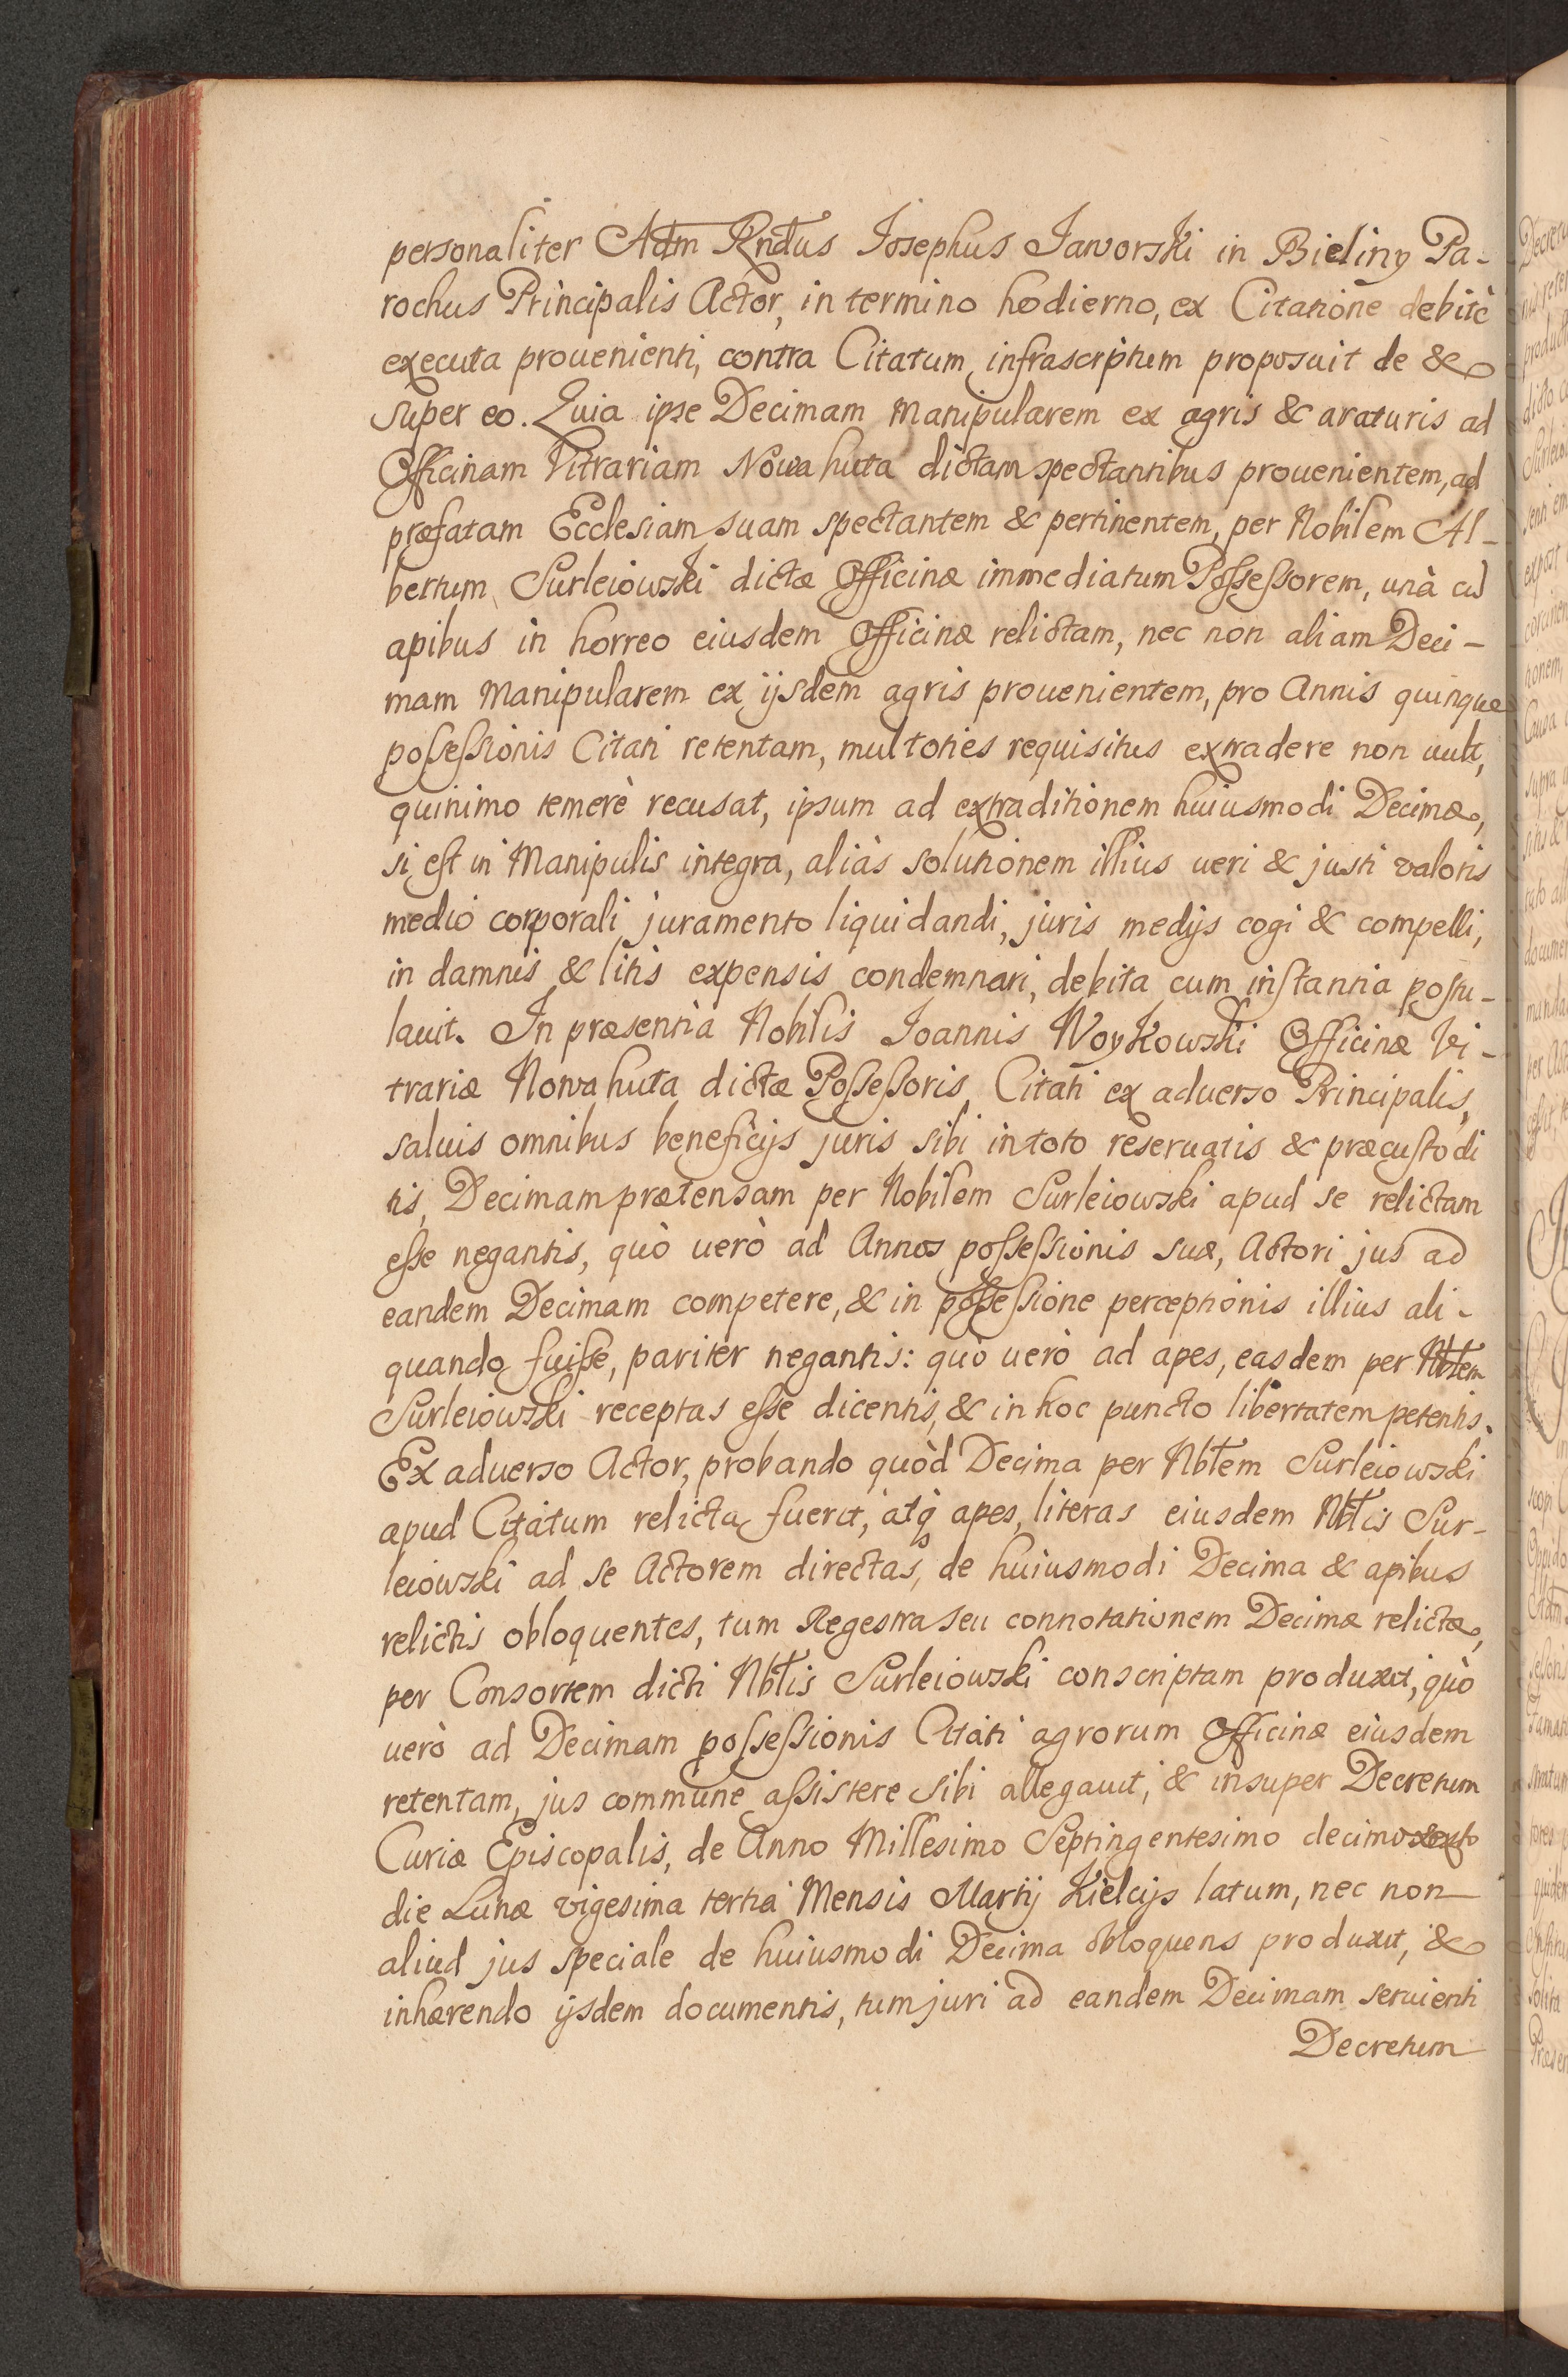 personaliter Adm Rndus Josephus Jaworski in Bieliny Pa-
rochus Principalis Actor, in termino hodierno, ex Citatione debitè
executa prouenienti, contra Citatum infrascriptum proposuit de &
super eo. Quia ipse Decimam Manipularem ex agris & araturis ad
Officinam Vitrariam Nowa huta dictam spectantibus prouenientem, ad
præfatam Ecclesiam suam spectantem & pertinentem, per Nobilem Al-
bertum Surleiowski dictæ Officinæ immediatum Possessorem, unà cū
apibus in horreo eiusdem Officinæ relictam, nec non aliam Deci-
mam Manipularem ex ijsdem agris prouenientem, pro Annis quinque
possessionis Citati retentam, multoties requisitus extradere non uult,
quinimo temerè recusat, ipsum ad extraditionem huiusmodi Decimæ,
si est in Manipulis integra, aliàs solutionem illius ueri & justi valoris
medio corporali juramento liquidandi, juris medijs cogi & compelli,
in damnis & litis expensis condemnari, debita cum instantia postu-
lauit. In præsentia Nobilis Joannis Woykowski Officinæ Vi-
trariæ Nowa huta dictæ Possessoris Citati ex aduerso Principalis,
saluis omnibus beneficijs juris sibi in toto reseruatis & præcustodi
tis, Decimam prætensam per Nobilem Surleiowski apud se relictam
esse negantis, quò uerò ad Annos possessionis suæ, Actori jus ad
eandem Decimam competere, & in possessione perceptionis illius ali-
quando fuisse, pariter negantis: quò uerò ad apes, easdem per Nbtem
Surleiowski receptas esse dicentis, & in hoc puncto libertatem petentis.
Ex aduerso Actor, probando quòd Decima per Nbtem Surleiowski
apud Citatum relicta fuerit, atq apes, literas eiusdem Nbtis Sur-
leiowski ad se Actorem directas, de huiusmodi Decima & apibus
relictis obloquentes, tum Regestra seu connotationem Decimæ relictæ,
per Consortem dicti Nbtis Surleiowski conscriptam produxit, quò
uerò ad Decimam possessionis Citati agrorum Officinæ eiusdem
retentam, jus commune assistere sibi allegauit, & insuper Decretum
Curiæ Episcopalis, de Anno Millesimo Septingentesimo decimo sexto
die Lunæ vigesima tertia Mensis Martij Kielcijs latum, nec non
aliud jus speciale de huiusmodi Decima obloquens produxit, &
inhærendo ijsdem documentis, tum juri ad eandem Decimam seruienti
Decretum